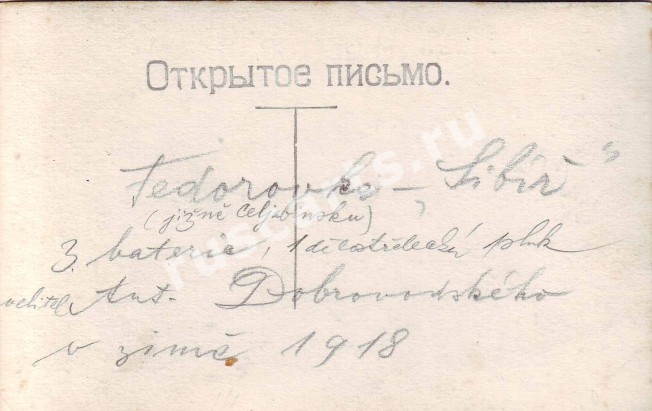 Открытое письмо.
Fedorovka – „Sibiř"
(jižně Čeljabinsku)
3. baterie, 1 dělostřelecký pluk
velitel Ant. Dobrovodského
v zimě 1918
ruscards.ru